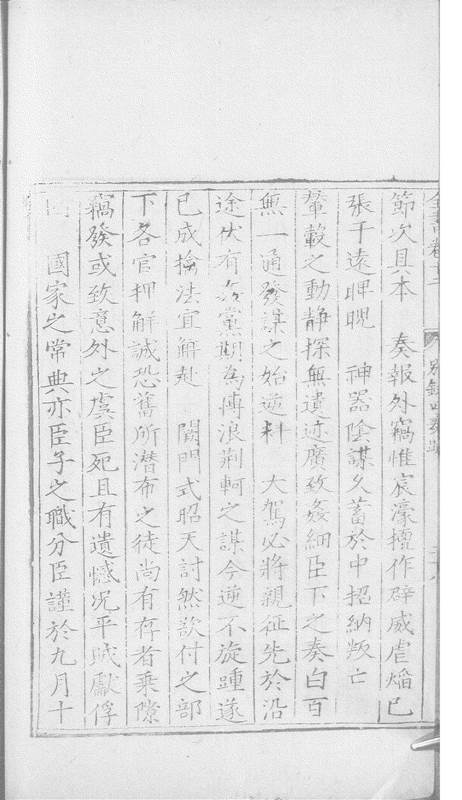 全書卷十二 別錄四 奏疏
節次具本 奏報外竊惟宸濠擅作辟威虐焰已
張于遠睥睨 神器陰謀久蓄於中招納叛亡
輦轂之動靜探無遺迹廣致姦細臣下之奏白百
無一通發謀之始逆料 大駕必將親征先於沿
途伏有姦黨期為博浪荊軻之謀今逆不旋踵遂
已成擒法宜解赴 闕門式昭天討然欲付之部
下各官押解誠恐舊所潛布之徒尚有存者乘隙
竊發或致意外之虞臣死且有遺憾況平賊獻俘
固 國家之常典亦臣子之職分臣謹於九月十